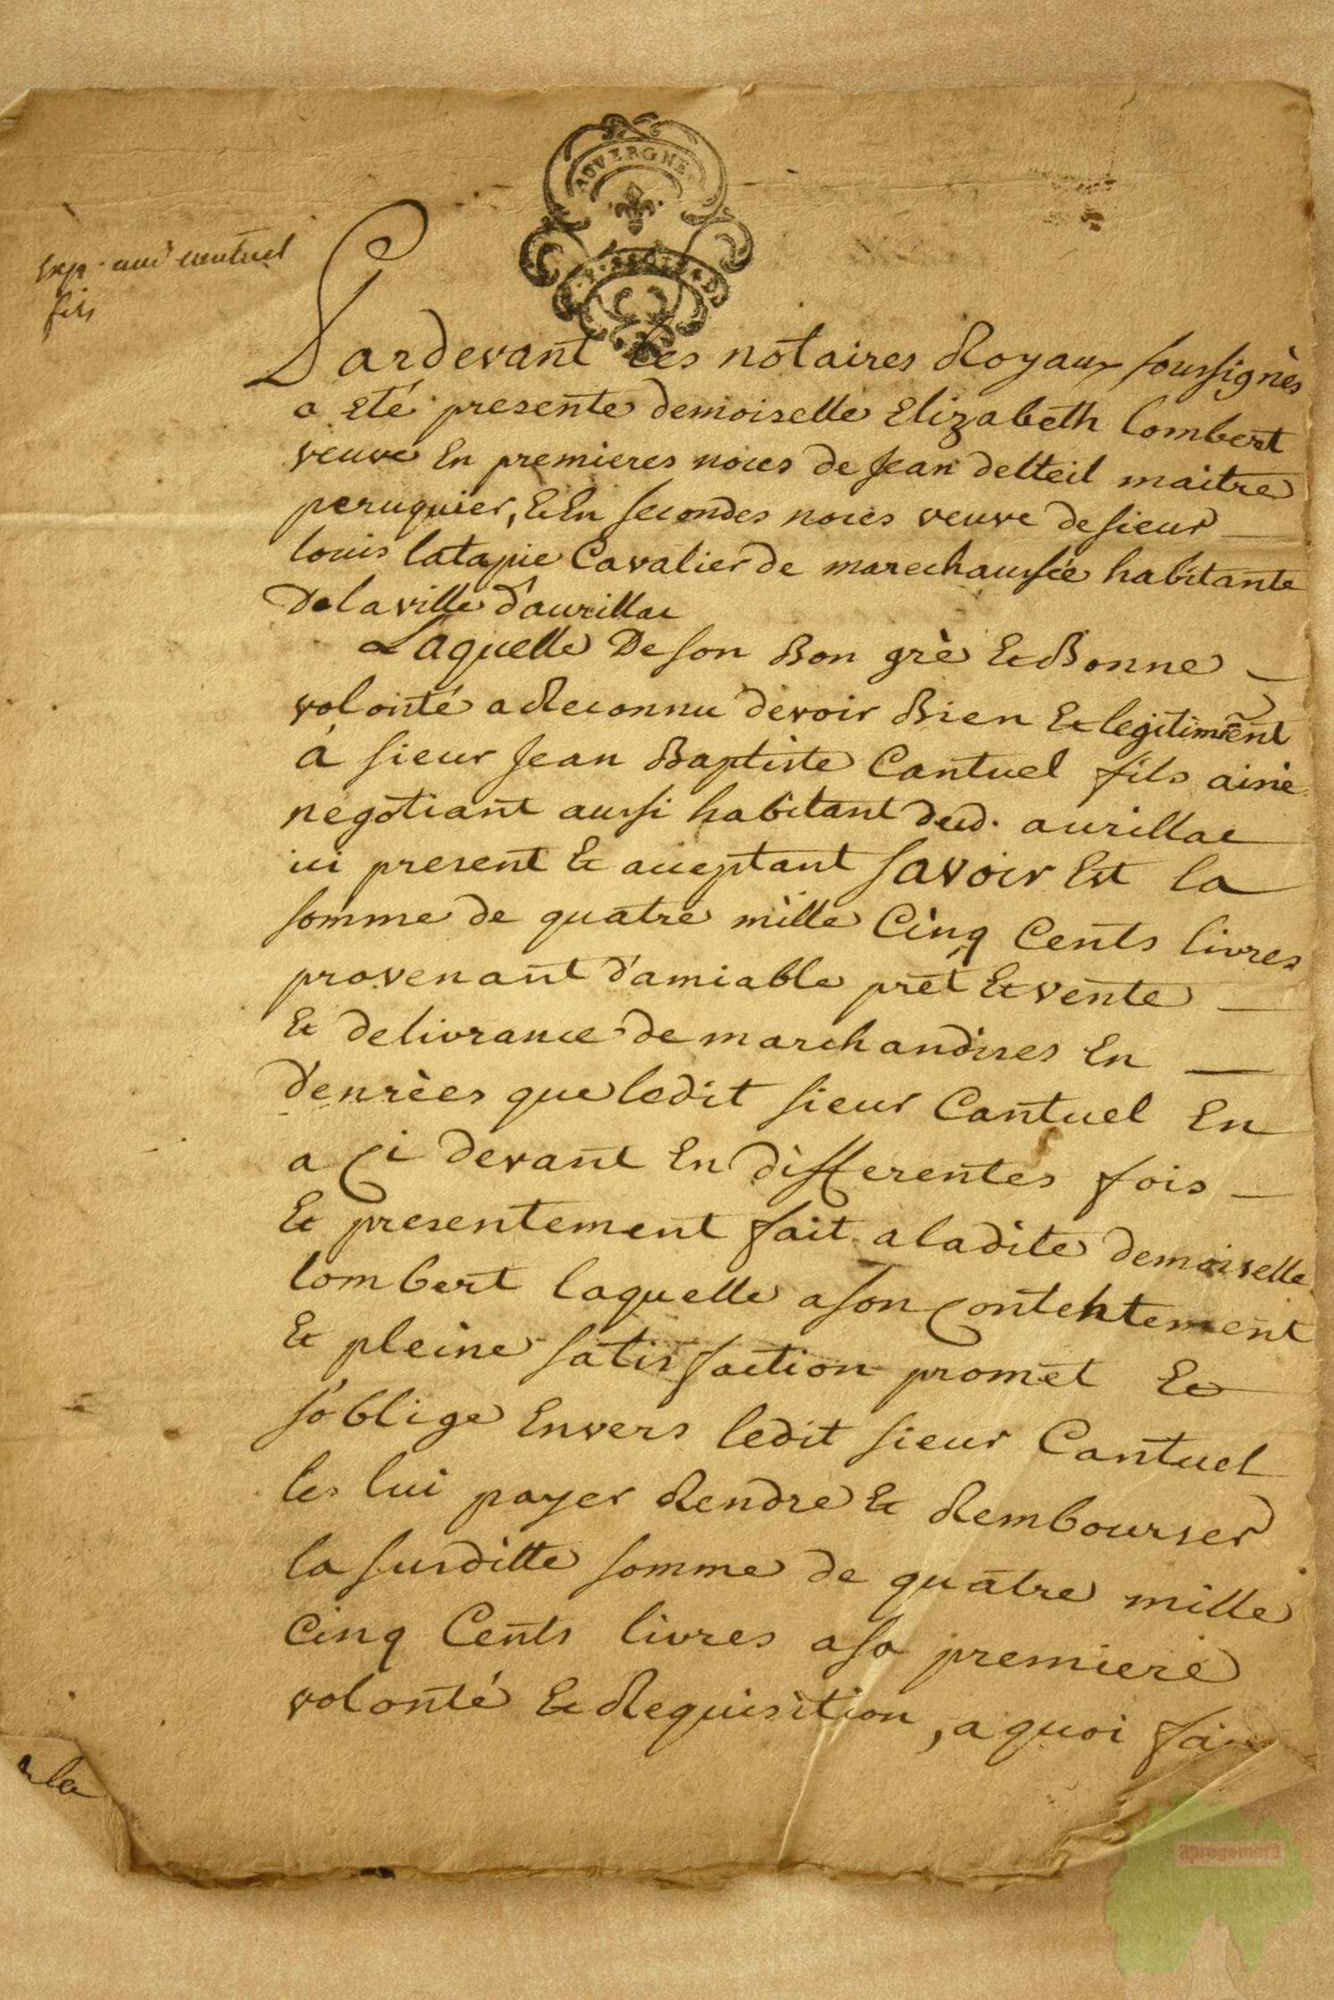 AUVERGNE
Exp. aud. Cantuel
fils
Pardevant Les notaires Royaux soussignès
a eté presente demoiselle Elizabeth Lombert
veuve En premieres noces de Jean delteil maitre
peruquier, & En secondes noces veuve de sieur
Louis Latapie Cavalier de marechaussée habitante
De la ville d'aurillac
Laquelle De son Bon grè & Bonne
volonté a Reconnu devoir Bien & legitimem̃ent
à sieur Jean Baptiste Cantuel fils ainé
negotiant aussi habitant dud. aurillac
ici present & acceptant savoir Est la
somme de quatre mille Cinq Cents livres
provenant d'amiable prèt & vente
& delivrance de marchandises En
denrèes que ledit sieur Cantuel En
a çi devant En differentes fois
& presentement fait a ladite demoiselle
Lombert laquelle a son Contentement
& pleine satisfaction promet &
s'oblige Envers ledit sieur Cantuel
les lui payer Rendre & Rembourser
la susditte somme de quatre mille
Cinq Cents livres a sa premiere
volonté & Requisition, a quoi fai
a la
aprogemere